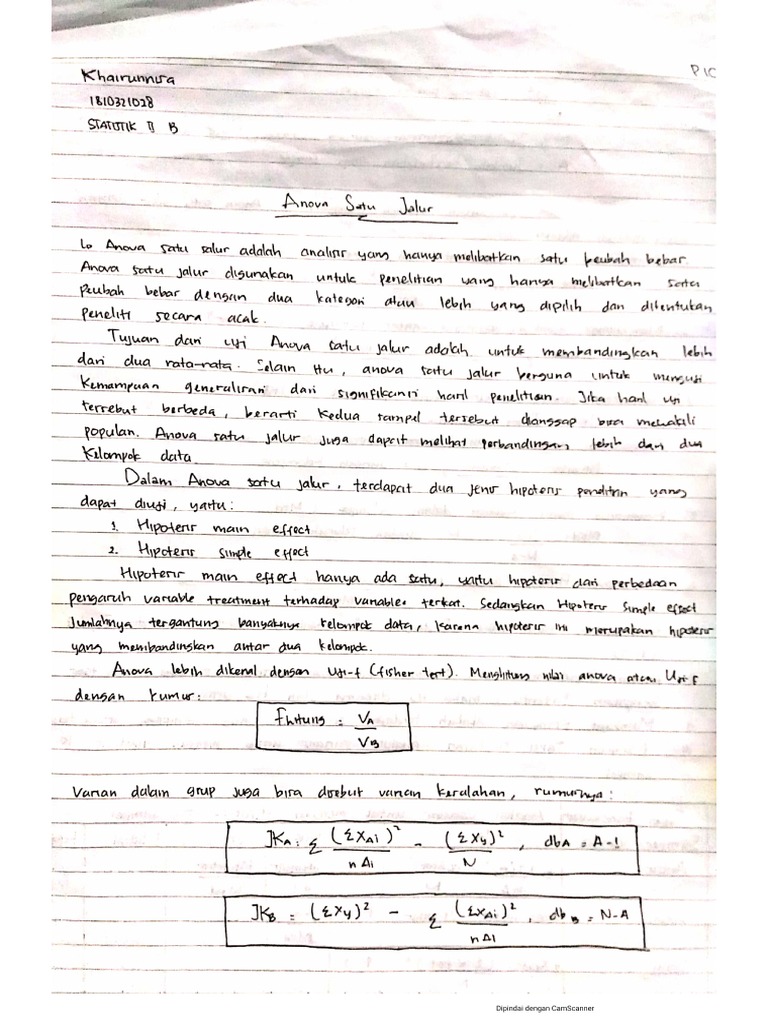 PIC
Khairunnisa
1810321028
STATISTIK II B
Anova Satu Jalur
Anova satu jalur adalah analisis yang hanya melibatkan satu peubah bebas.
Anova satu jalur digunakan untuk penelitian yang hanya melibatkan satu
peubah bebas dengan dua kategori atau lebih yang dipilih dan ditentukan
peneliti secara acak.
Tujuan dari uji Anova satu jalur adalah untuk membandingkan lebih
dari dua rata-rata. Selain itu, anova satu jalur berguna untuk menguji
kemampuan generalisasi dari signifikansi hasil penelitian. Jika hasil uji
tersebut berbeda, berarti kedua sampel tersebut dianggap bisa mewakili
populasi. Anova satu jalur juga dapat melihat perbandingan lebih dari dua
kelompok data
Dalam Anova satu jalur, terdapat dua jenis hipotesis penelitian yang
dapat diuji, yaitu:
1. Hipotesis main effect
2. Hipotesis simple effect
Hipotesis main effect hanya ada satu, yaitu hipotesis dari perbedaan
pengaruh variable treatment terhadap variable terikat. Sedangkan Hipotesis simple effect
jumlahnya tergantung banyaknya kelompok data, karena hipotesis ini merupakan hipotesis
yang membandingkan antar dua kelompok.
Anova lebih dikenal dengan Uji-f (fisher test). Menghitung nilai anova atau Uji-f
dengan rumus:
Fhitung = VA / VB
Varian dalam grup juga bisa disebut varian kesalahan, rumusnya:
JKA = Σ (ΣXAi)² / nAi - (ΣXy)² / N, dbA = A-1
JKB = (ΣXy)² - Σ (ΣXAi)² / nAi, dbB = N-A
Dipindai dengan CamScanner